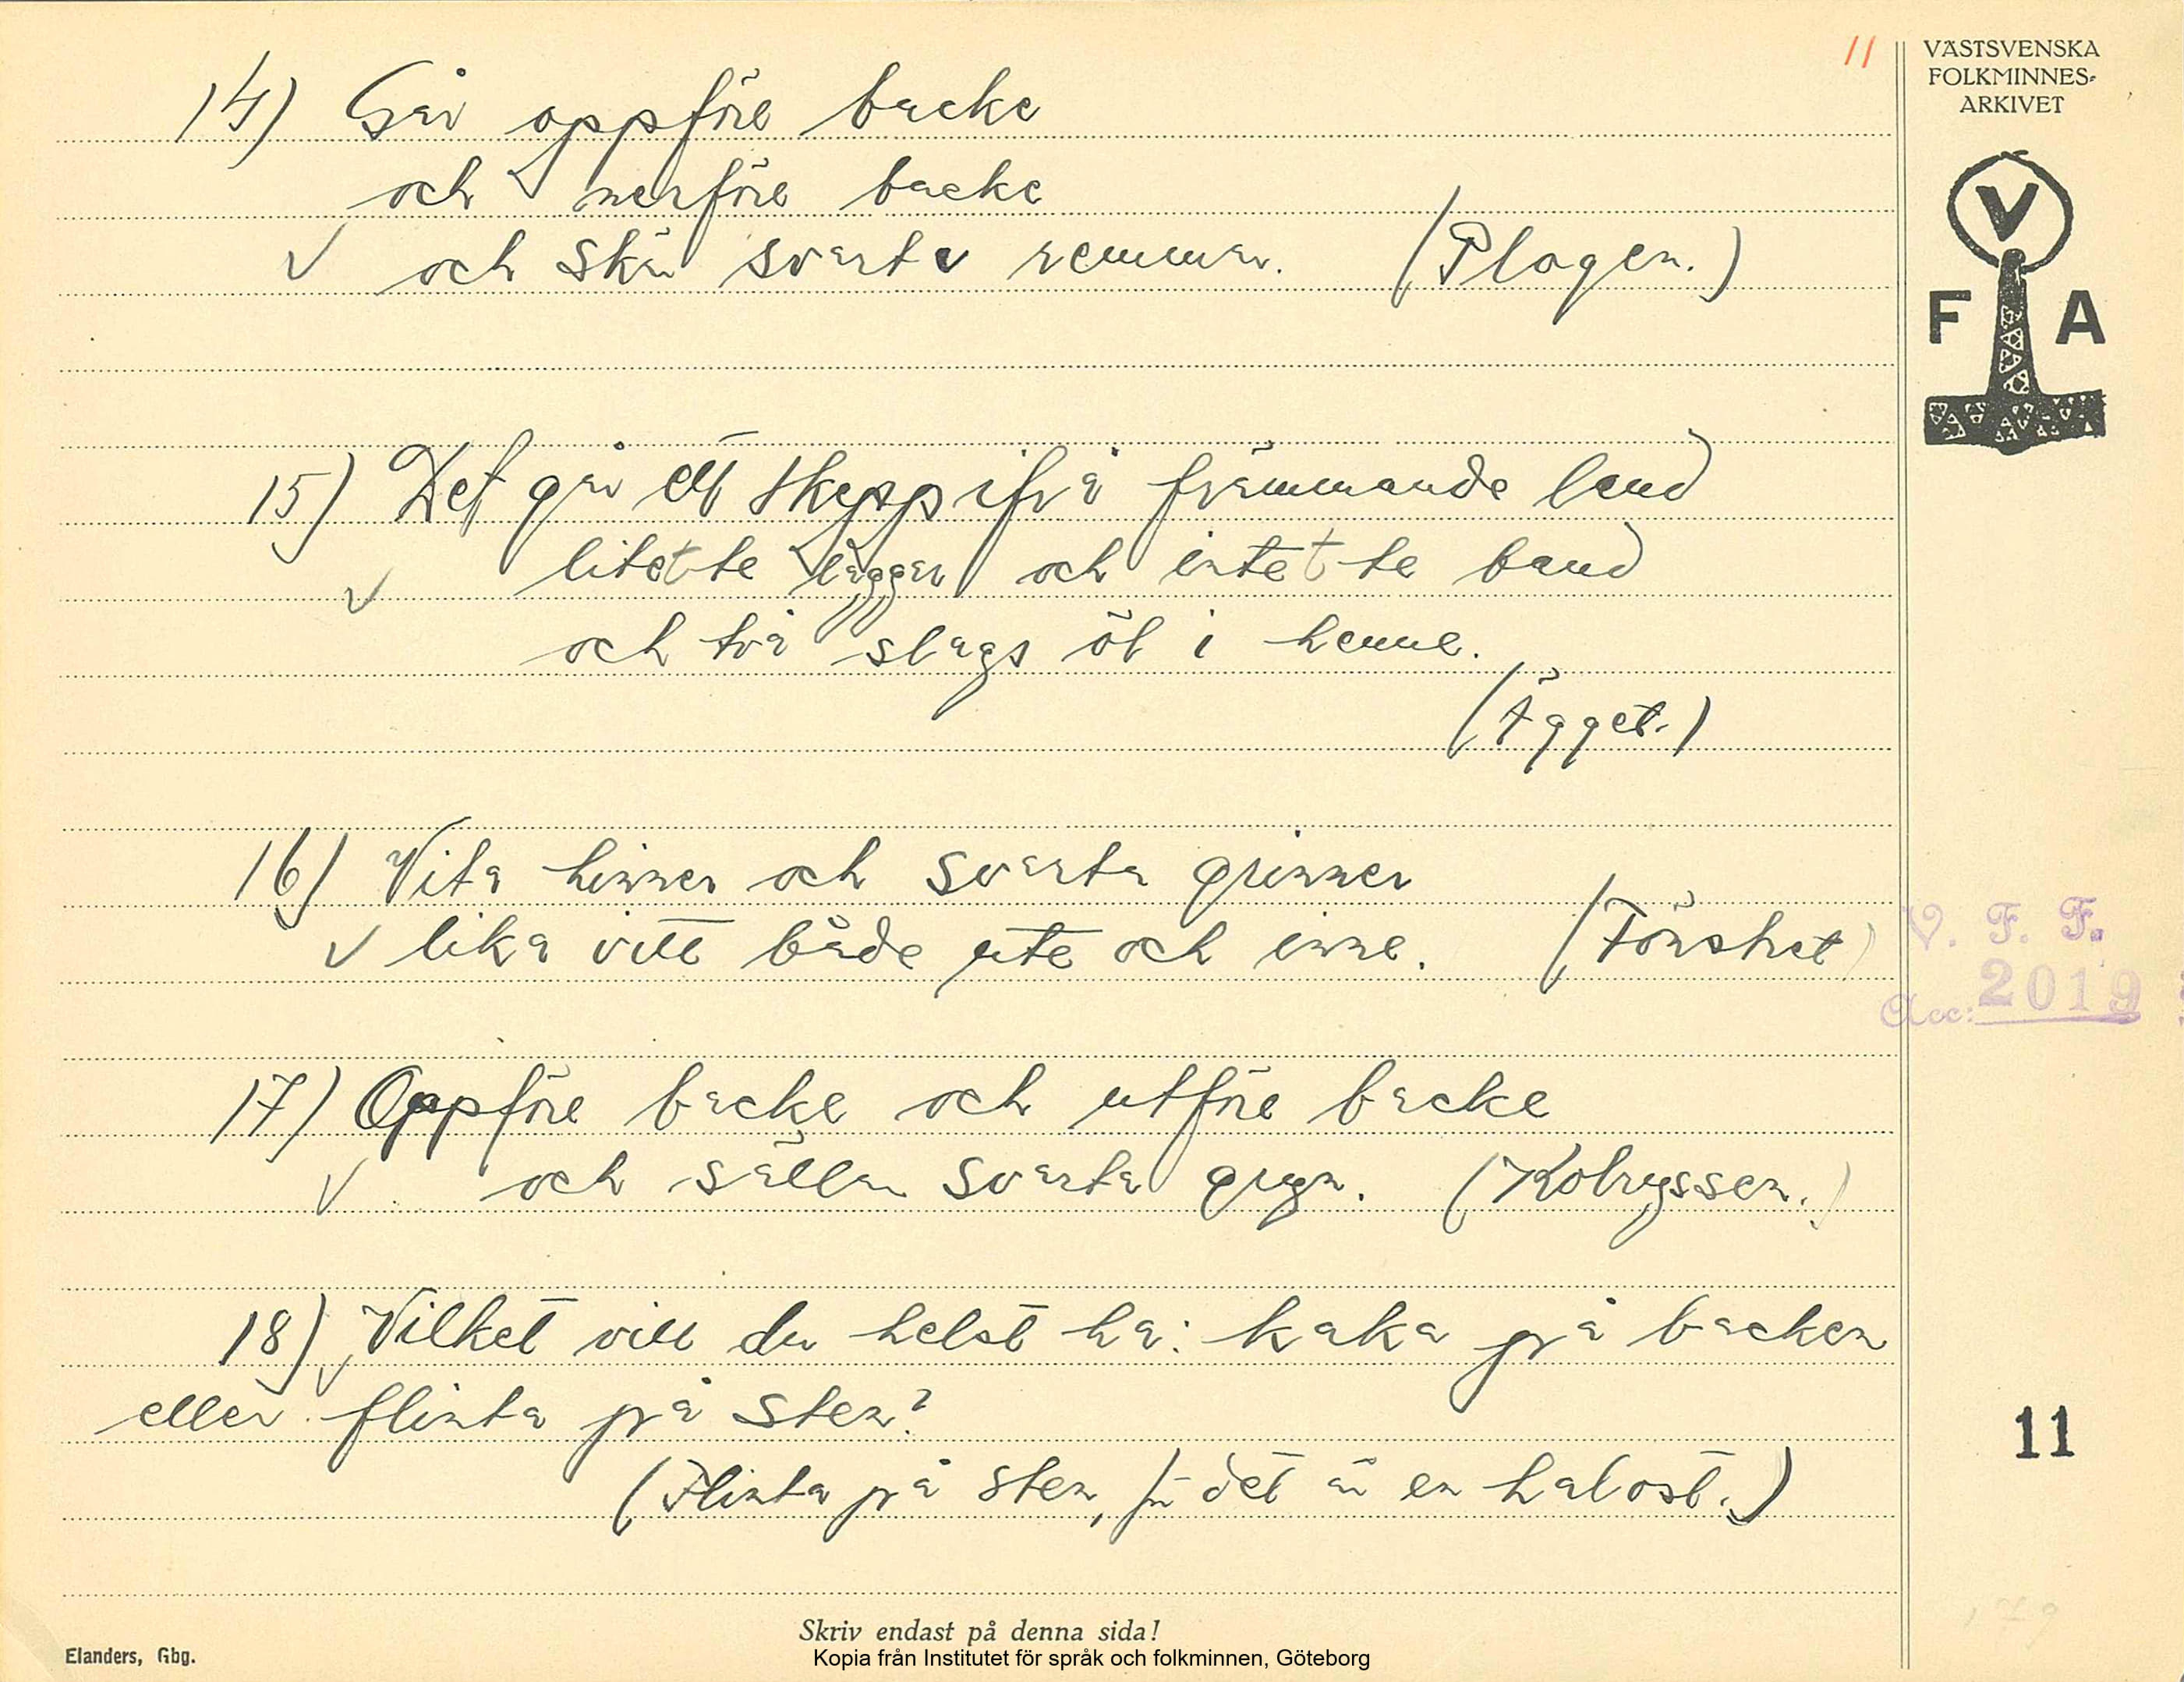 11
VÄSTSVENSKA
FOLKMINNES-
ARKIVET
V
F A
14) Går oppföre backe
och nerföre backe
och skär svarta remmar. (Plogen.)
15) Det går ett skepp ifrå främmande land
litet te läggar och intet te band
och två slags öl i henne.
(Ägget.)
16) Vita hinner och svarta grinner
lika vitt både ute och inne. (Fönstret)
17) Oppföre backe och utföre backe
och sållar svarta gryn. (Kolryssen.)
18) Vilket vill du helst ha: kaka på backen
eller flinta på sten?
(Flinta på sten, för det är en halost.)
V. F. F.
Acc: 2019
11
Skriv endast på denna sida!
Elanders, Gbg.
Kopia från Institutet för språk och folkminnen, Göteborg